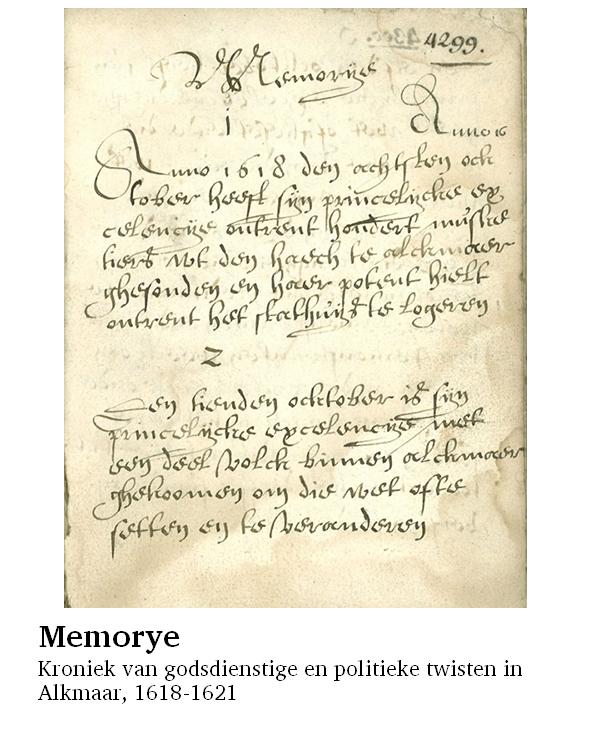 4299.
Memorye
1
Anno
Anno 1618 den achtsten ock
tober heeft sijn princelijcke ex
celencije ontrent hondert muske
tiers wt den haech te alckmaer
ghesonden en haer potent hielt
ontrent het stathuijs te logeren
2
Den tienden ocktober is sijn
princelijcke excelencije met
een deel volck binnen alckmaer
ghekoomen om die wet ofte
setten en te veranderen
Memorye
Kroniek van godsdienstige en politieke twisten in
Alkmaar, 1618-1621